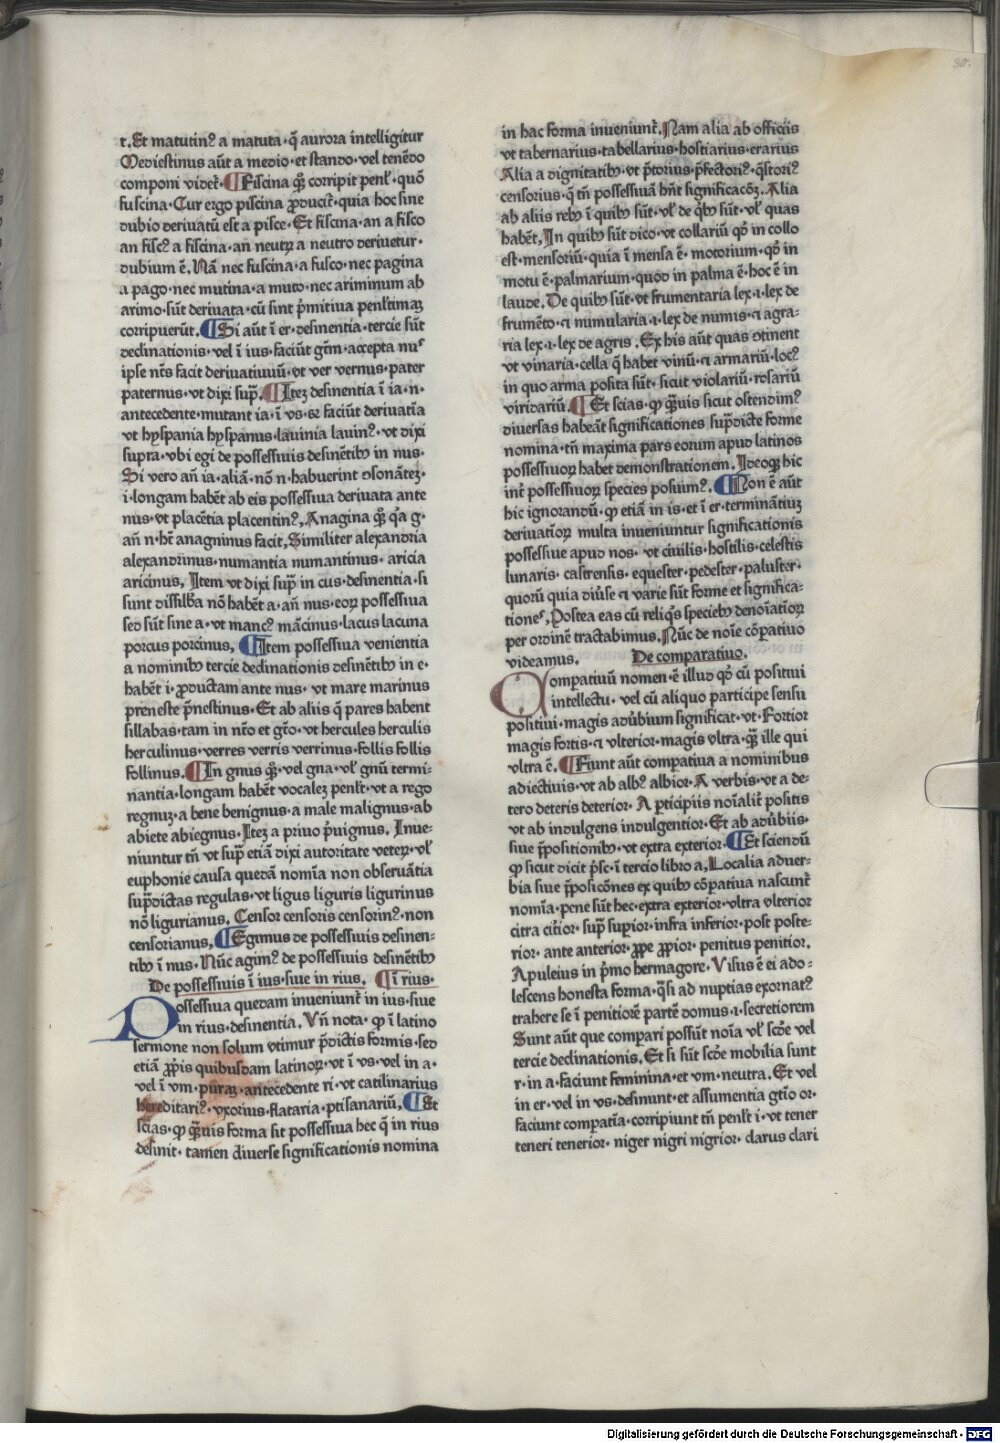 30.
t. Et matutinꝰ a matuta · q̄ aurora intelligitur
Mediestinus aūt a medio · et stando · vel tenēdo
componi videt̄ · ¶ Fiscina qꝫ̄ corripit penl̄t · quō
fuscina · Cur ergo piscina ꝓducit̄ · quia hoc sine
dubio deriuatū est a pisce · Et fiscina · an a fisco
an fiscꝰ a fiscina · an neutrꝝ a neutro deriuetur ·
dubium ē. Nā nec fuscina · a fusco · nec pagina
a pago · nec mutina · a muto · nec ariminum ab
arimo · sūt deriuata · cū sint p̄mitiua penl̄timaꝫ
corripuerūt. ¶ Si aūt ī er · desinentia · tercie sūt
declinationis · vel ī ius · faciūt gtm̄ · accepta nuˢ
ipse nt̄s facit deriuatiuuū · vt ver vernus · pater
paternus · vt dixi sup̄. ¶ Iteꝫ desinentia ī ia · n ·
antecedente · mutant ia · ī vs · ⁊ faciūt deriuatīa
vt hyspania hyspanus · lauinia lauinꝰ · vt dixi
supra · vbi egi de possessiuis desinētibꝫ in nus ·
Si vero añ ia · aliā · nō n · habuerint ɔsonāteꝫ ·
i · longam habēt ab eis possessiua deriuata ante
nus · vt placētia placentinꝰ. Anagina qꝫ̄ qͥa g ·
añ n · hꝫ̄ anagninus facit. Similiter alexandria
alexandrinus · numantia numantinus · aricia
aricinus. Item vt dixi sup̄ in cus · desinentia · si
sunt dissillba nō habēt a · añ nus · eoꝝ possessiua
sed sūt sine a · vt mancꝰ mācinus · lacus lacuna
porcus porcinus. ¶ Item possessiua venientia
a nominibꝫ tercie declinationis desinētibꝫ in e ·
habēt i · ꝓductam ante nus · vt mare marinus
preneste p̄nestinus · Et ab aliis q̄ pares habent
sillabas · tam in nt̄o et gt̄o · vt hercules herculis
herculinus · verres verris verrinus · follis follis
follinus. ¶ In gnus qꝫ̄ · vel gna · vl̄ gnū termi-
nantia · longam habēt vocaleꝫ penl̄t · vt a rego
regnuꝫ · a bene benignus · a male malignus · ab
abiete abiegnus · Iteꝫ a priuo p̄uignus. Inue-
niuntur tn̄ vt sup̄ etiā dixi autoritate veterꝝ · vl̄
euphonie causa quedā nomīa non obseruātia
sup̄dictas regulas · vt ligus liguris ligurinus
nō ligurianus. Censor censoris censorinꝰ · non
censorianus. ¶ Egimus de possessiuis desinen-
tibꝫ ī nus · Nūc agimꝰ de possessiuis desinētibꝫ
De possessiuis ī ius · siue in rius. ¶ ī rius ·
Possessiua quedam inueniunt̄ in ius · siue
in rius · desinentia. Vn̄ nota · ꝙ ī latino
sermone non solum vtimur p̄dictis formis · sed
etiā ꝓp̄is quibusdam latinoꝝ · vt ī vs · vel in a ·
vel ī vm · puraꝫ · antecedente ri · vt catilinarius
hereditariꝰ · vxorius · flataria · ptisanariū. ¶ Et
scias · ꝙ qꝫ̄uis forma sit possessiua hec q̄ in rius
desinit · tamen diuerse significationis nomina
in hac forma inueniunt̄. Nam alia ab officiis
vt tabernarius · tabellarius · hostiarius · erarius
Alia a dignitatibꝫ · vt p̄torius · p̄fectoriꝰ · q̄storiꝰ
censorius · q̄ tn̄ possessiuā hn̄t significacōꝫ. Alia
ab aliis rebꝫ ī quibꝫ sūt · vl̄ de qͥbꝫ sūt · vl̄ quas
habēt. In quibꝫ sūt dico · vt collariū qd̄ in collo
est · mensoriū · quia ī mensa ē · motorium · qd̄ in
motu ē · palmarium · quod in palma ē · hoc ē in
laude. De quibꝫ sūt · vt frumentaria lex · i · lex de
frumēto · ⁊ numularia · i · lex de numis · ⁊ agra-
ria lex · i · lex de agris. Ex his aūt quas ɔtinent
vt vinaria · cella q̄ habet vinū · ⁊ armariū · locꝰ
in quo arma posita sūt · sicut violariū · rosariū
viridariū. ¶ Et scias · ꝙ qꝫ̄uis sicut ostendimꝰ
diuersas habeāt significationes sup̄dicte forme
nomina · tn̄ maxima pars eorum apud latinos
possessiuoꝝ habet demonstrationem. Ideoqꝫ hic
int̄ possessiuoꝝ species posuimꝰ. ¶ Non ē aūt
hic ignorandū · ꝙ etiā in is · et ī er · terminātiuꝫ
deriuatīoꝝ multa inueniuntur significationis
possessiue apud nos · vt ciuilis · hostilis · celestis
lunaris · castrensis · equester · pedester · paluster ·
quorū quia diūse ⁊ varie sūt forme et significa-
tioneˢ. Postea eas cū reliqͥs speciebꝫ denoīatīoꝝ
per ordinē tractabimus. Nūc de noīe cōpatiuo
videamus. De comparatiuo.
Compatiuū nomen · ē illud qd̄ cū positiui
intellectu · vel cū aliquo participe sensu
positiui · magis adūbium significat · vt · Fortior
magis fortis · ⁊ vlterior · magis vltra · qꝫ̄ ille qui
vltra ē. ¶ Fiunt aūt compatiua a nominibus
adiectiuis · vt ab albꝰ albior · A verbis · vt a de-
tero deteris deterior · A pticipiis noīalit̄ positis
vt ab indulgens indulgentior · Et ab adūbiis ·
siue p̄positionibꝫ · vt extra exterior · ¶ Et sciendū
ꝙ sicut dicit p̄sc · ī tercio libro a. Localia aduer-
bia siue p̄posicōnes ex quibꝫ cōpatiua nascunt̄
nomīa · pene sūt hec · extra exterior · vltra vlterior
citra cit̄ior · sup̄ supior · infra inferior · post poste-
rior · ante anterior · ꝓpe ꝓpior · penitus penitior.
Apuleius in p̄mo hermagore · Visus ē ei ado-
lescens honesta forma · qͣsi ad nuptias exornatꝰ
trahere se ī penitiorē partē domus · i · secretiorem
Sunt aūt que compari possūt noīa vl̄ scd̄e vel
tercie declinationis. Et si sūt scd̄e mobilia sunt
r · in a · faciunt feminina · et vm · neutra. Et vel
in er · vel in vs · desinunt · et assumentia gt̄io or ·
faciunt compatīa · corripiunt tn̄ penl̄t i · vt tener
teneri tenerior · niger nigri nigrior · clarus clari
Digitalisierung gefördert durch die Deutsche Forschungsgemeinschaft - DFG